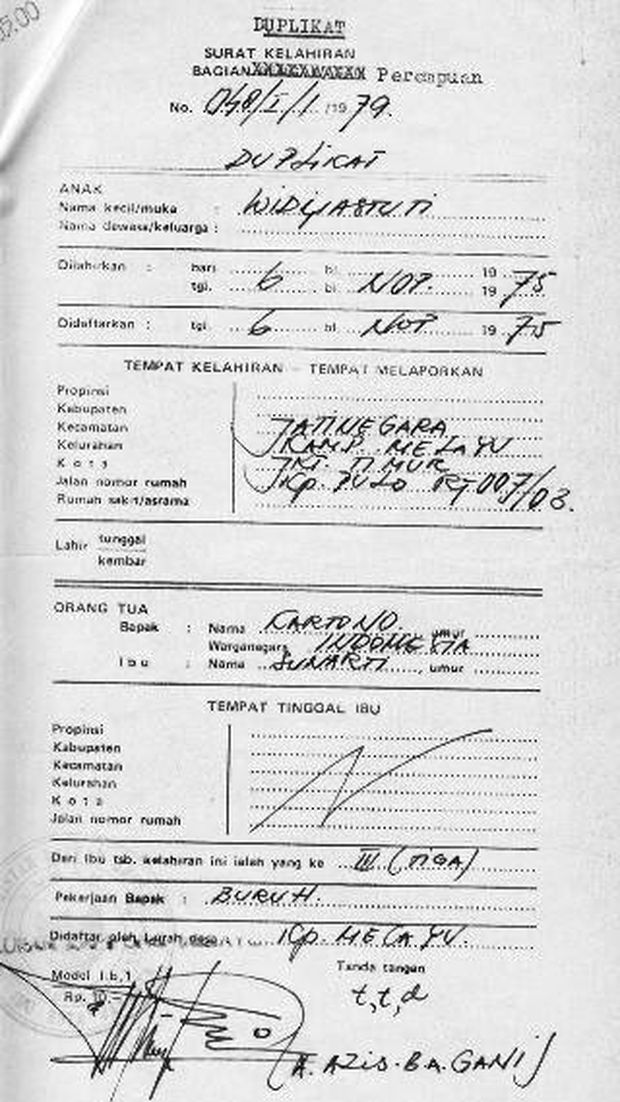 DUPLIKAT
SURAT KELAHIRAN
BAGIAN Perempuan
No. 048/I/1/1979.
DUPLIKAT
ANAK
Nama kecil/muka : WIDIJASTUTI
Nama dewasa/keluarga :
Dilahirkan : hari bl. 19
tgl. 6 bl. NOP. 19 75
Didaftarkan : tgl. 6 bl. NOP 19 75
TEMPAT KELAHIRAN – TEMPAT MELAPORKAN
Propinsi
Kabupaten
Kecamatan JATINEGARA
Kelurahan KAMP. MELAYU
Kota JKT. TIMUR
Jalan nomor rumah Kp. PULO RT 007/03.
Rumah sakit/asrama
Lahir tunggal
kembar
ORANG TUA
Bapak : Nama KARTONO. umur
Warganegara INDONESIA
Ibu : Nama SUNARTI, umur
TEMPAT TINGGAL IBU
Propinsi
Kabupaten
Kecamatan
Kelurahan
Kota
Jalan nomor rumah
Dari Ibu tsb. kelahiran ini ialah yang ke III (TIGA)
Pekerjaan Bapak : BURUH.
Didaftar oleh Lurah desa Kp. MELAYU.
Model 1.b.1 Tanda tangan
Rp. 10,– t,t,d
A. AZIS. B.A. GANI